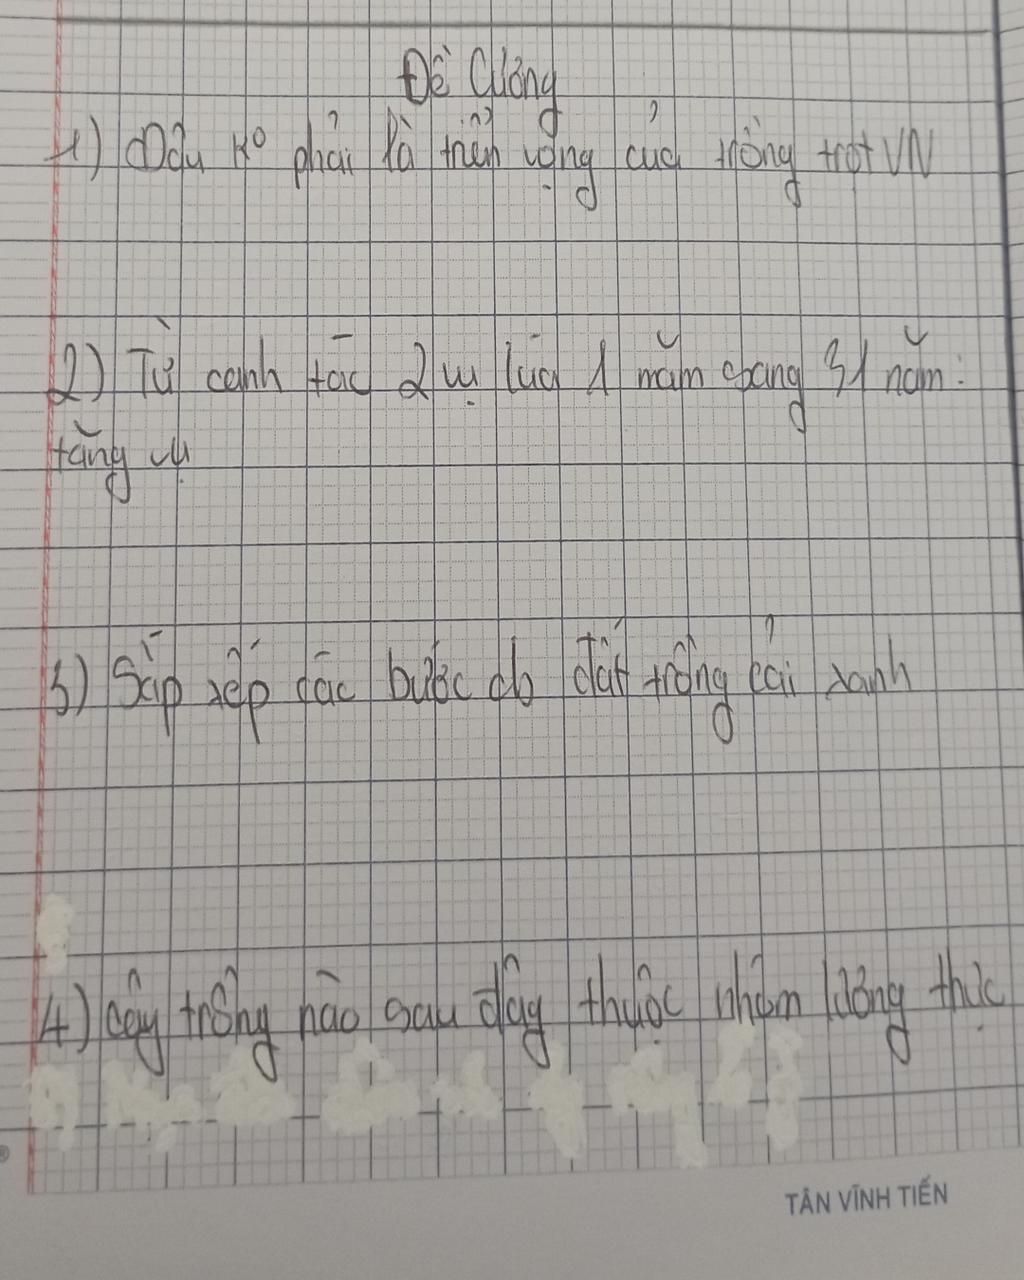 Đề Cương
1) Đâu ko phải là triển vọng của trồng trọt VN
2) Từ canh tác 2 vụ lúa 1 năm sang 31 năm:
tăng vụ
3) Sắp xếp các bước do đất trồng cải xanh
4) cây trồng nào sau đây thuộc nhóm lương thực
TÂN VĨNH TIẾN